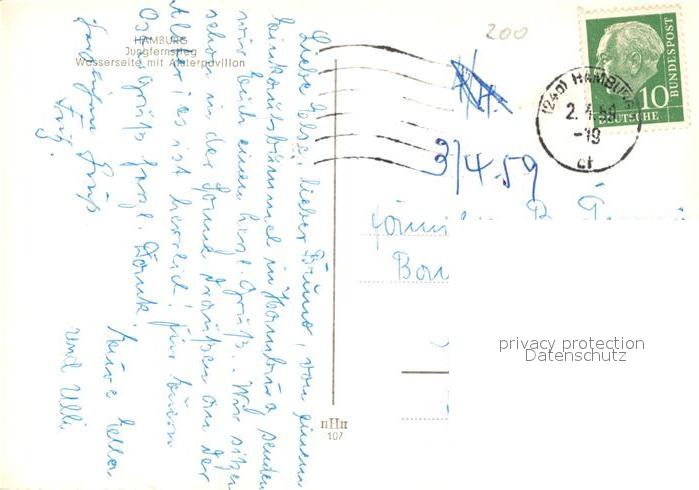 HAMBURG
Jungfernstieg
Wasserseite mit Alsterpavillon
Liebe Else, lieber Bruno, von einem
Einkaufsbummel in Hamburg senden
wir Euch einen herzl. Gruß. Wir sitzen
schon in der Sonne draußen an der
Alster; es ist herrlich! Für Euern
Ostergruß herzl. Dank!
Eure Hella
und Ulli
Gruß
200
3/4.59
(24a) HAMBURG
2.4.59
-19
10
DEUTSCHE
BUNDESPOST
Familie B.
privacy protection
Datenschutz
HHH
107